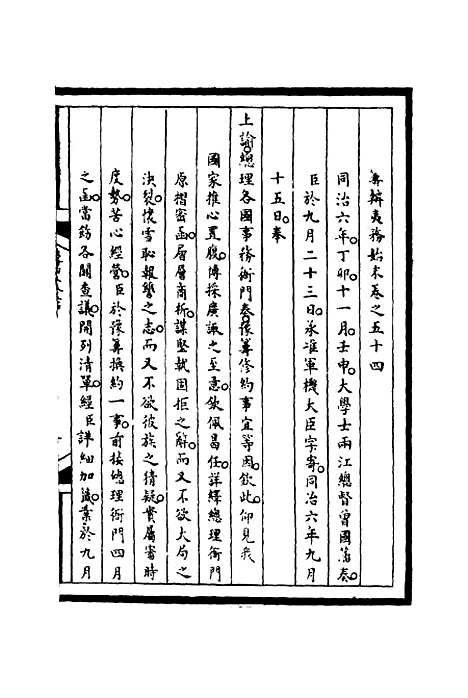 籌辦夷務始末卷之五十四
同治六年。丁卯。十一月。壬申。大學士兩江總督曾國藩奏。
臣於九月二十三日。承准軍機大臣字寄。同治六年九月
十五日。奉
上諭。總理各國事務衙門奏。豫籌修約事宜等因。欽此。仰見我
國家推心置腹。博採廣諏之至意。欽佩曷任。詳繹總理衙門
原摺密函。層層商析。謀堅執固拒之辭。而又不欲大局之
決裂。懷雪恥報讐之志。而又不欲彼族之猜疑。實屬審時
度勢。苦心經營。臣於豫籌換約一事。前接總理衙門四月
之函。當飭各關查議。開列清單。經臣詳細加籤。業於九月